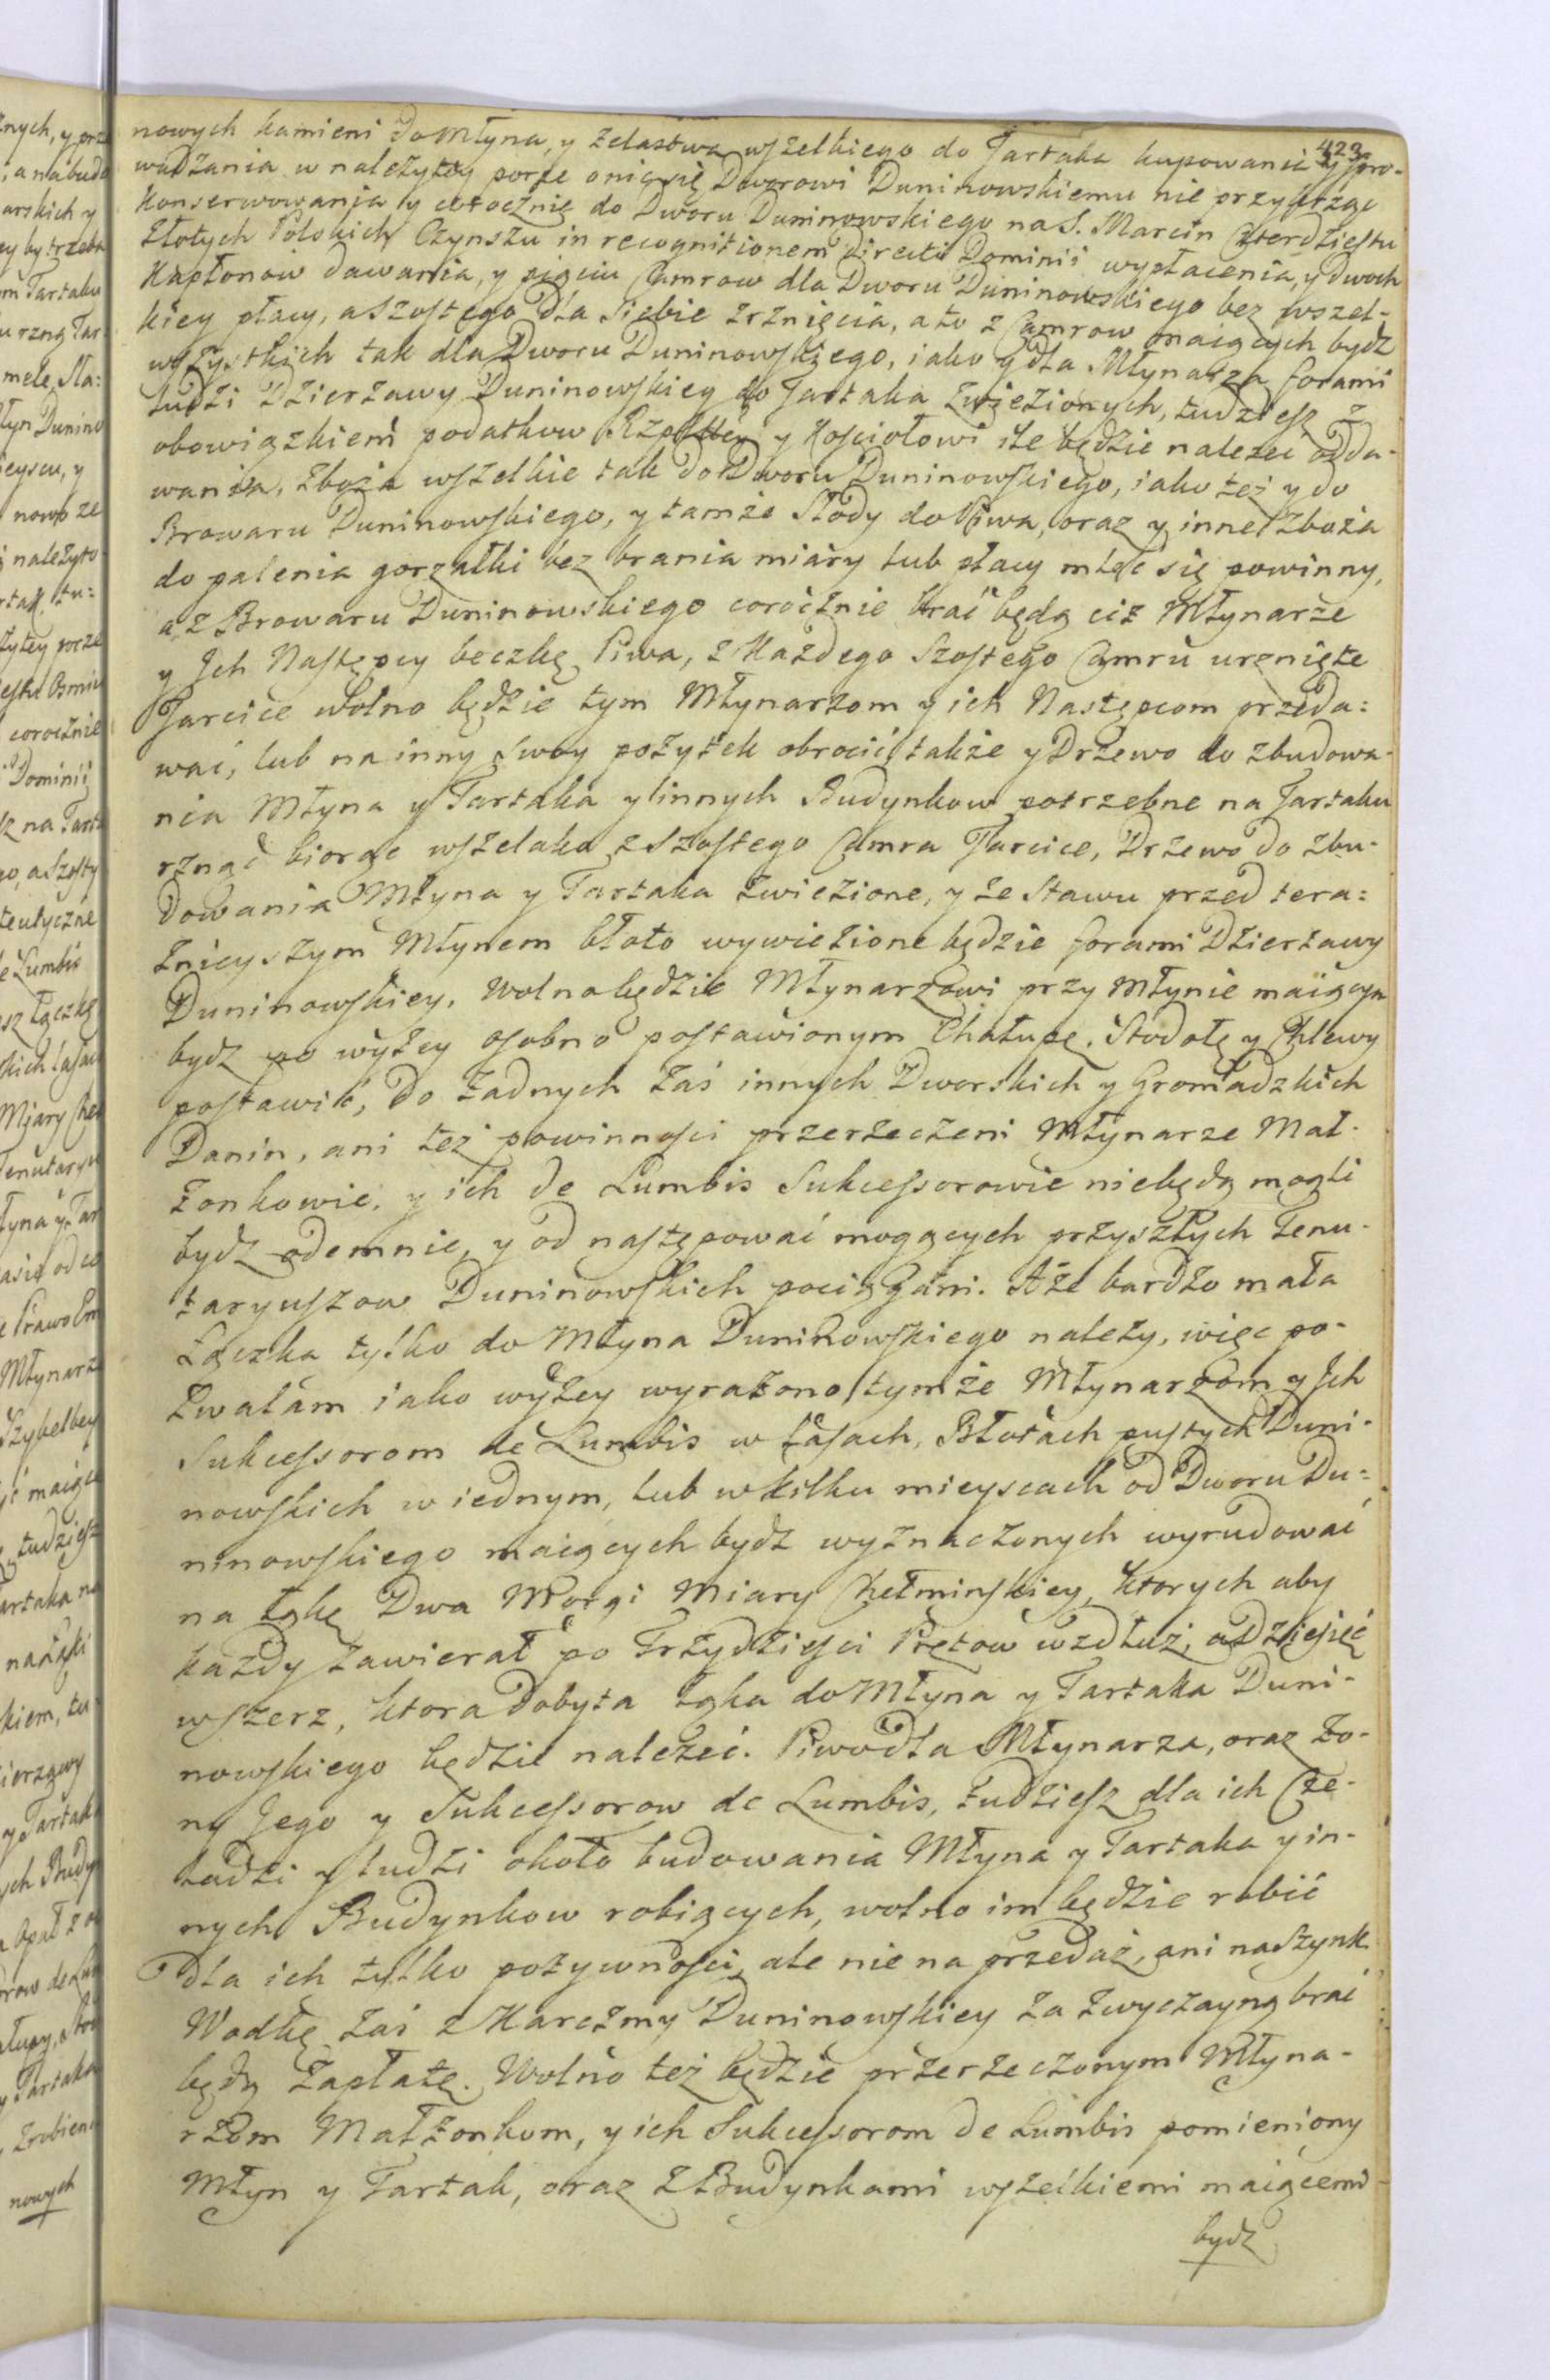 423
nowych kamieni do Młyna, y zelastwa wszelkiego do Tartaka kupowania y pro-
wadzania w należytey porze o nic się Dworowi Duninowskiemu nie przykrząc
Konserwowania y corocznie do Dworu Duninowskiego na S. Marcin Czterdziestu
Złotych Polskich Czynszu in recognitionem directi Dominii wypłacenia, y dwoch
Kapłonow dawania, y pięciu Camrow dla Dworu Duninowskiego bez wszel-
kiey płacy, a szostego dla siebie zrznięcia, a to z Camrow maiących bydz
wszystkich tak dla Dworu Duninowskiego, iako y dla Młynarza forami
ludzi Dzierzawy Duninowskiey do Tartaka zwiezionych, tudziesz z
obowiązkiem podatkow Rzpltey y Kościołowi ile będzie nalezeć odda-
wania, zboża wszelkie tak do Dworu Duninowskiego, iako też y do
Browaru Duninowskiego, y tamże Słody do Piwa, oraz y inne zboża
do palenia gorzałki bez brania miary lub płacy mleć się powinny,
a z Browaru Duninowskiego corocznie brać będą ciż Młynarze
y Jch Następcy beczkę Piwa, z Każdego Szostego Camru urznięte
Tarcice wolno będzie tym Młynarzom y ich Następcom przeda:
wać, lub na inny swoy pożytek obrocić, także y Drzewo do zbudowa-
nia Młyna y Tartaka y innych Budynkow potrzebne na Tartaku
rznąć biorąc wszelako z Szostego Camra Tarcice, Drzewo do zbu-
dowania Młyna y Tartaka zwiezione, y ze Stawu przed tera:
znieyszym Młynem błoto wywiezione będzie forami Dzierzawy
Duninowskiey, wolno będzie Młynarzowi przy Młynie maiącym
bydz po wyżey osobno postawionym Chałupę, Stodołę y Chlewy
postawić, do żadnych zaś innych Dworskich y Gromadzkich
Danin, ani też powinności przerzeczeni Młynarze Mał-
żonkowie, y ich de Lumbis Sukcessorowie nie będą mogli
bydz odemnie, y od następować mogących przyszłych Tenu-
taryuszow Duninowskich pociągani. A że bardzo mała
Łączka tylko do Młyna Duninowskiego należy, więc po-
zwalam iako wyżey wyrażono tymże Młynarzom y Jch
Sukcessorom de Lumbis w Lasach, Błotach pustych Duni-
nowskich w iednym, lub w kilku mieyscach od Dworu Du=
ninowskiego maiących bydz wyznaczonych wyrudować
na łąkę Dwa Morgi Miary Chełminskiey, ktorych aby
każdy zawierał po Trzydzieści Prętow wzdłuż, a Dziesięć
wszerz, ktora dobyta łąka do Młyna y Tartaka Duni-
nowskiego będzie nalezeć. Piwo dla Młynarza, oraz Żo-
ny Jego y Sukcessorow de Lumbis, tudziesz dla ich Cze-
ladzi y ludzi około budowania Młyna y Tartaka y in-
nych Budynkow robiących, wolno im będzie robić
dla ich tylko pożywności, ale nie na przedaż, ani na Szynk
Wodkę zaś z Karczmy Duninowskiey za zwyczayną brać
będą Zapłatę. Wolno też będzie przerzeczonym Młyna-
rzom Małżonkom, y ich Sukcessorom de Lumbis pomieniony
Młyn y Tartak, oraz z Budynkami wszelkiemi maiącemi
bydz